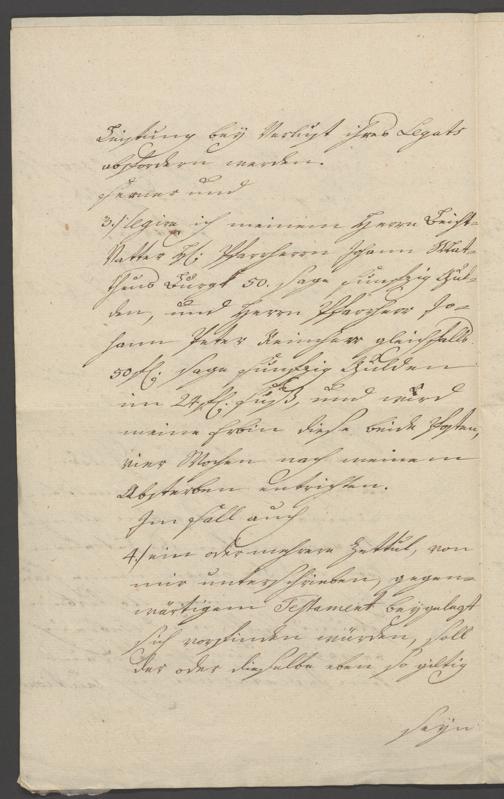 Leistung bey Verlust ihres Legats
abfordern werden.
ferner und
3./ legire ich meinem Herrn Beicht-
Vatter H: Pfarrherrn Johann Mat-
thæus Burgk 50. sage funfzig Gul-
den, und Herrn Pfarrherr Jo-
hann Peter Reinherr gleichfalls
50 fl. sage funfzig Gulden
im 24 fl. Fuß, und wird
meine Erbin diese beide Posten,
vier Wochen nach meinem
Absterben entrichten.
Im fall auch
4./ ein oder mehrere Zettul, von
mir unterschrieben, gegen-
wärtigem Testament beygelegt
sich vorfinden würden, soll
der oder dieselbe eben so giltig
seyn